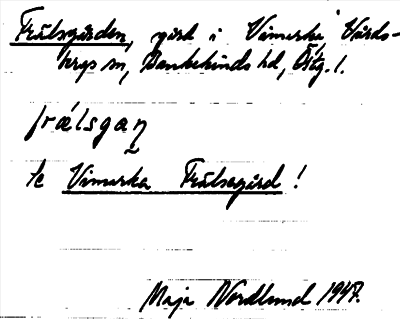 Frälsgården, gård i Vimarka, Vårds-
bergs sn, Bankekinds hd, Östg. l.
frälsgaɳ
Se Vimarka Frälsegård!
Maja Nordlund 1947.